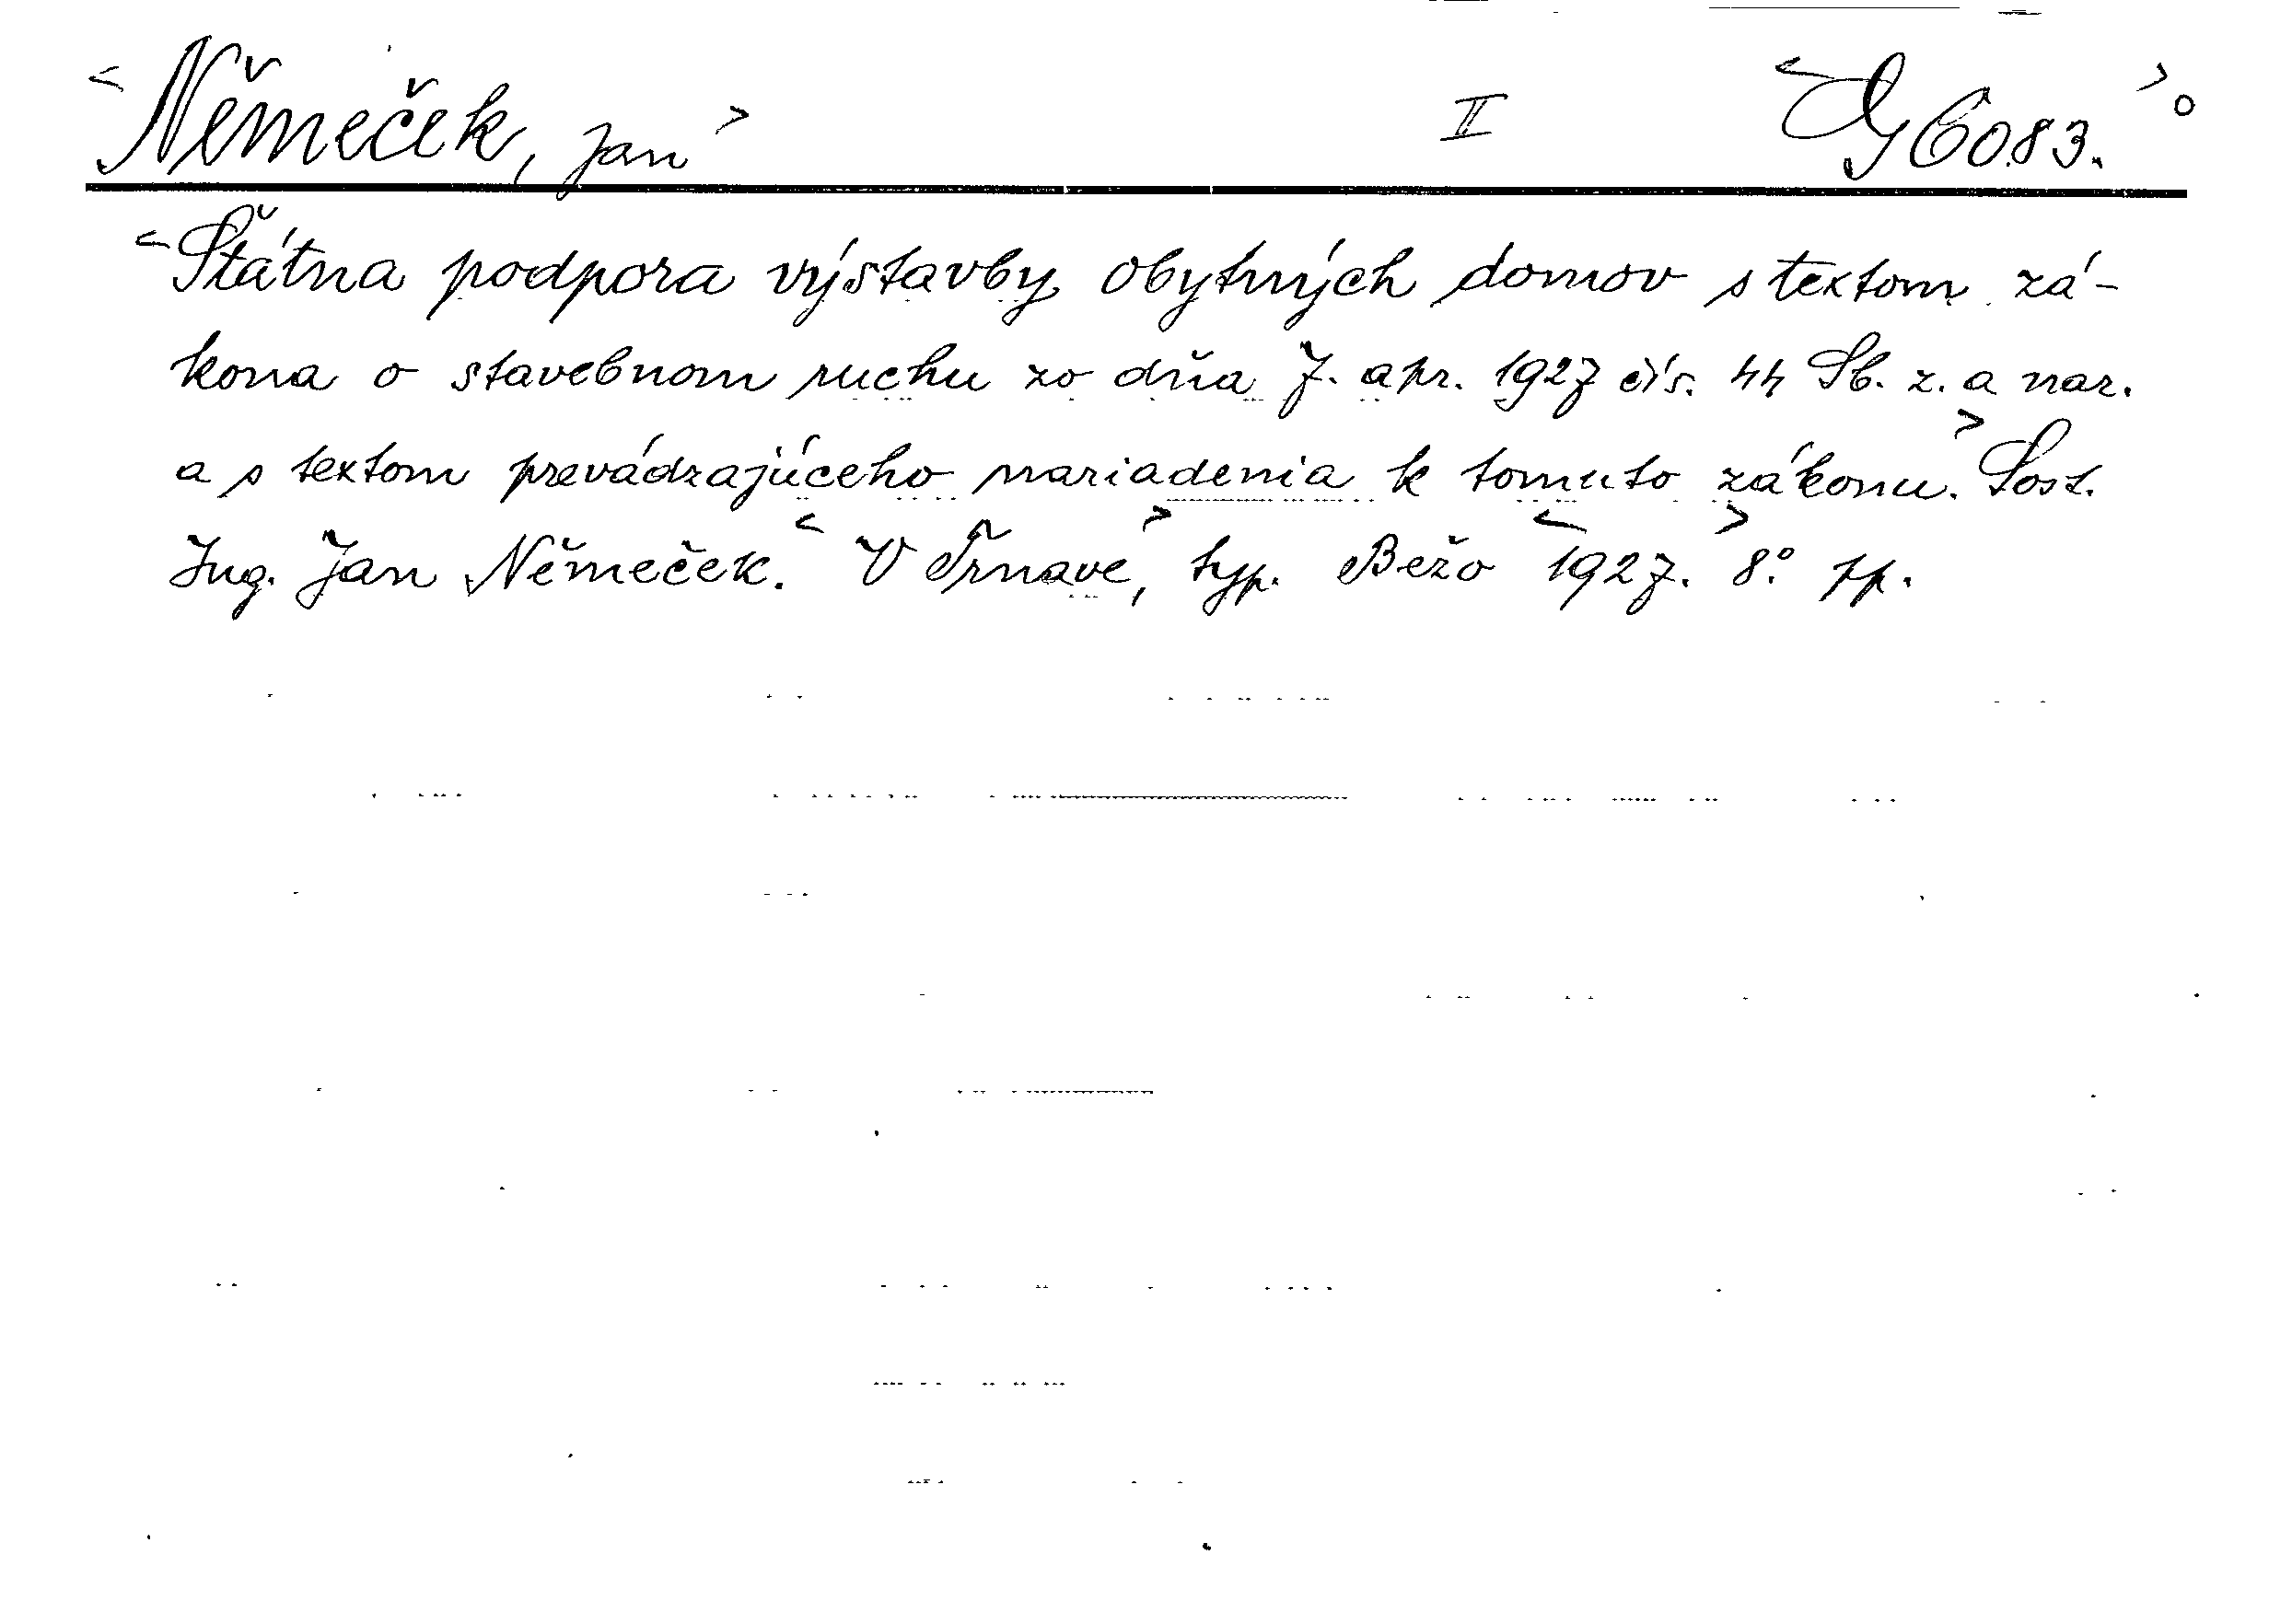 <Němeček, Jan> II <G 6083.>°
<Štátna podpora výstavby obytných domov s textom zá-
kona o stavebnom ruchu zo dňa 7. apr. 1927 čís. 44 Sb. z. a nar.
a s textom prevádzajúceho nariadenia k tomuto zákonu.> Sost.
Ing. Jan Němeček. <V Trnave>, typ. Bežo <1927>. 8°.